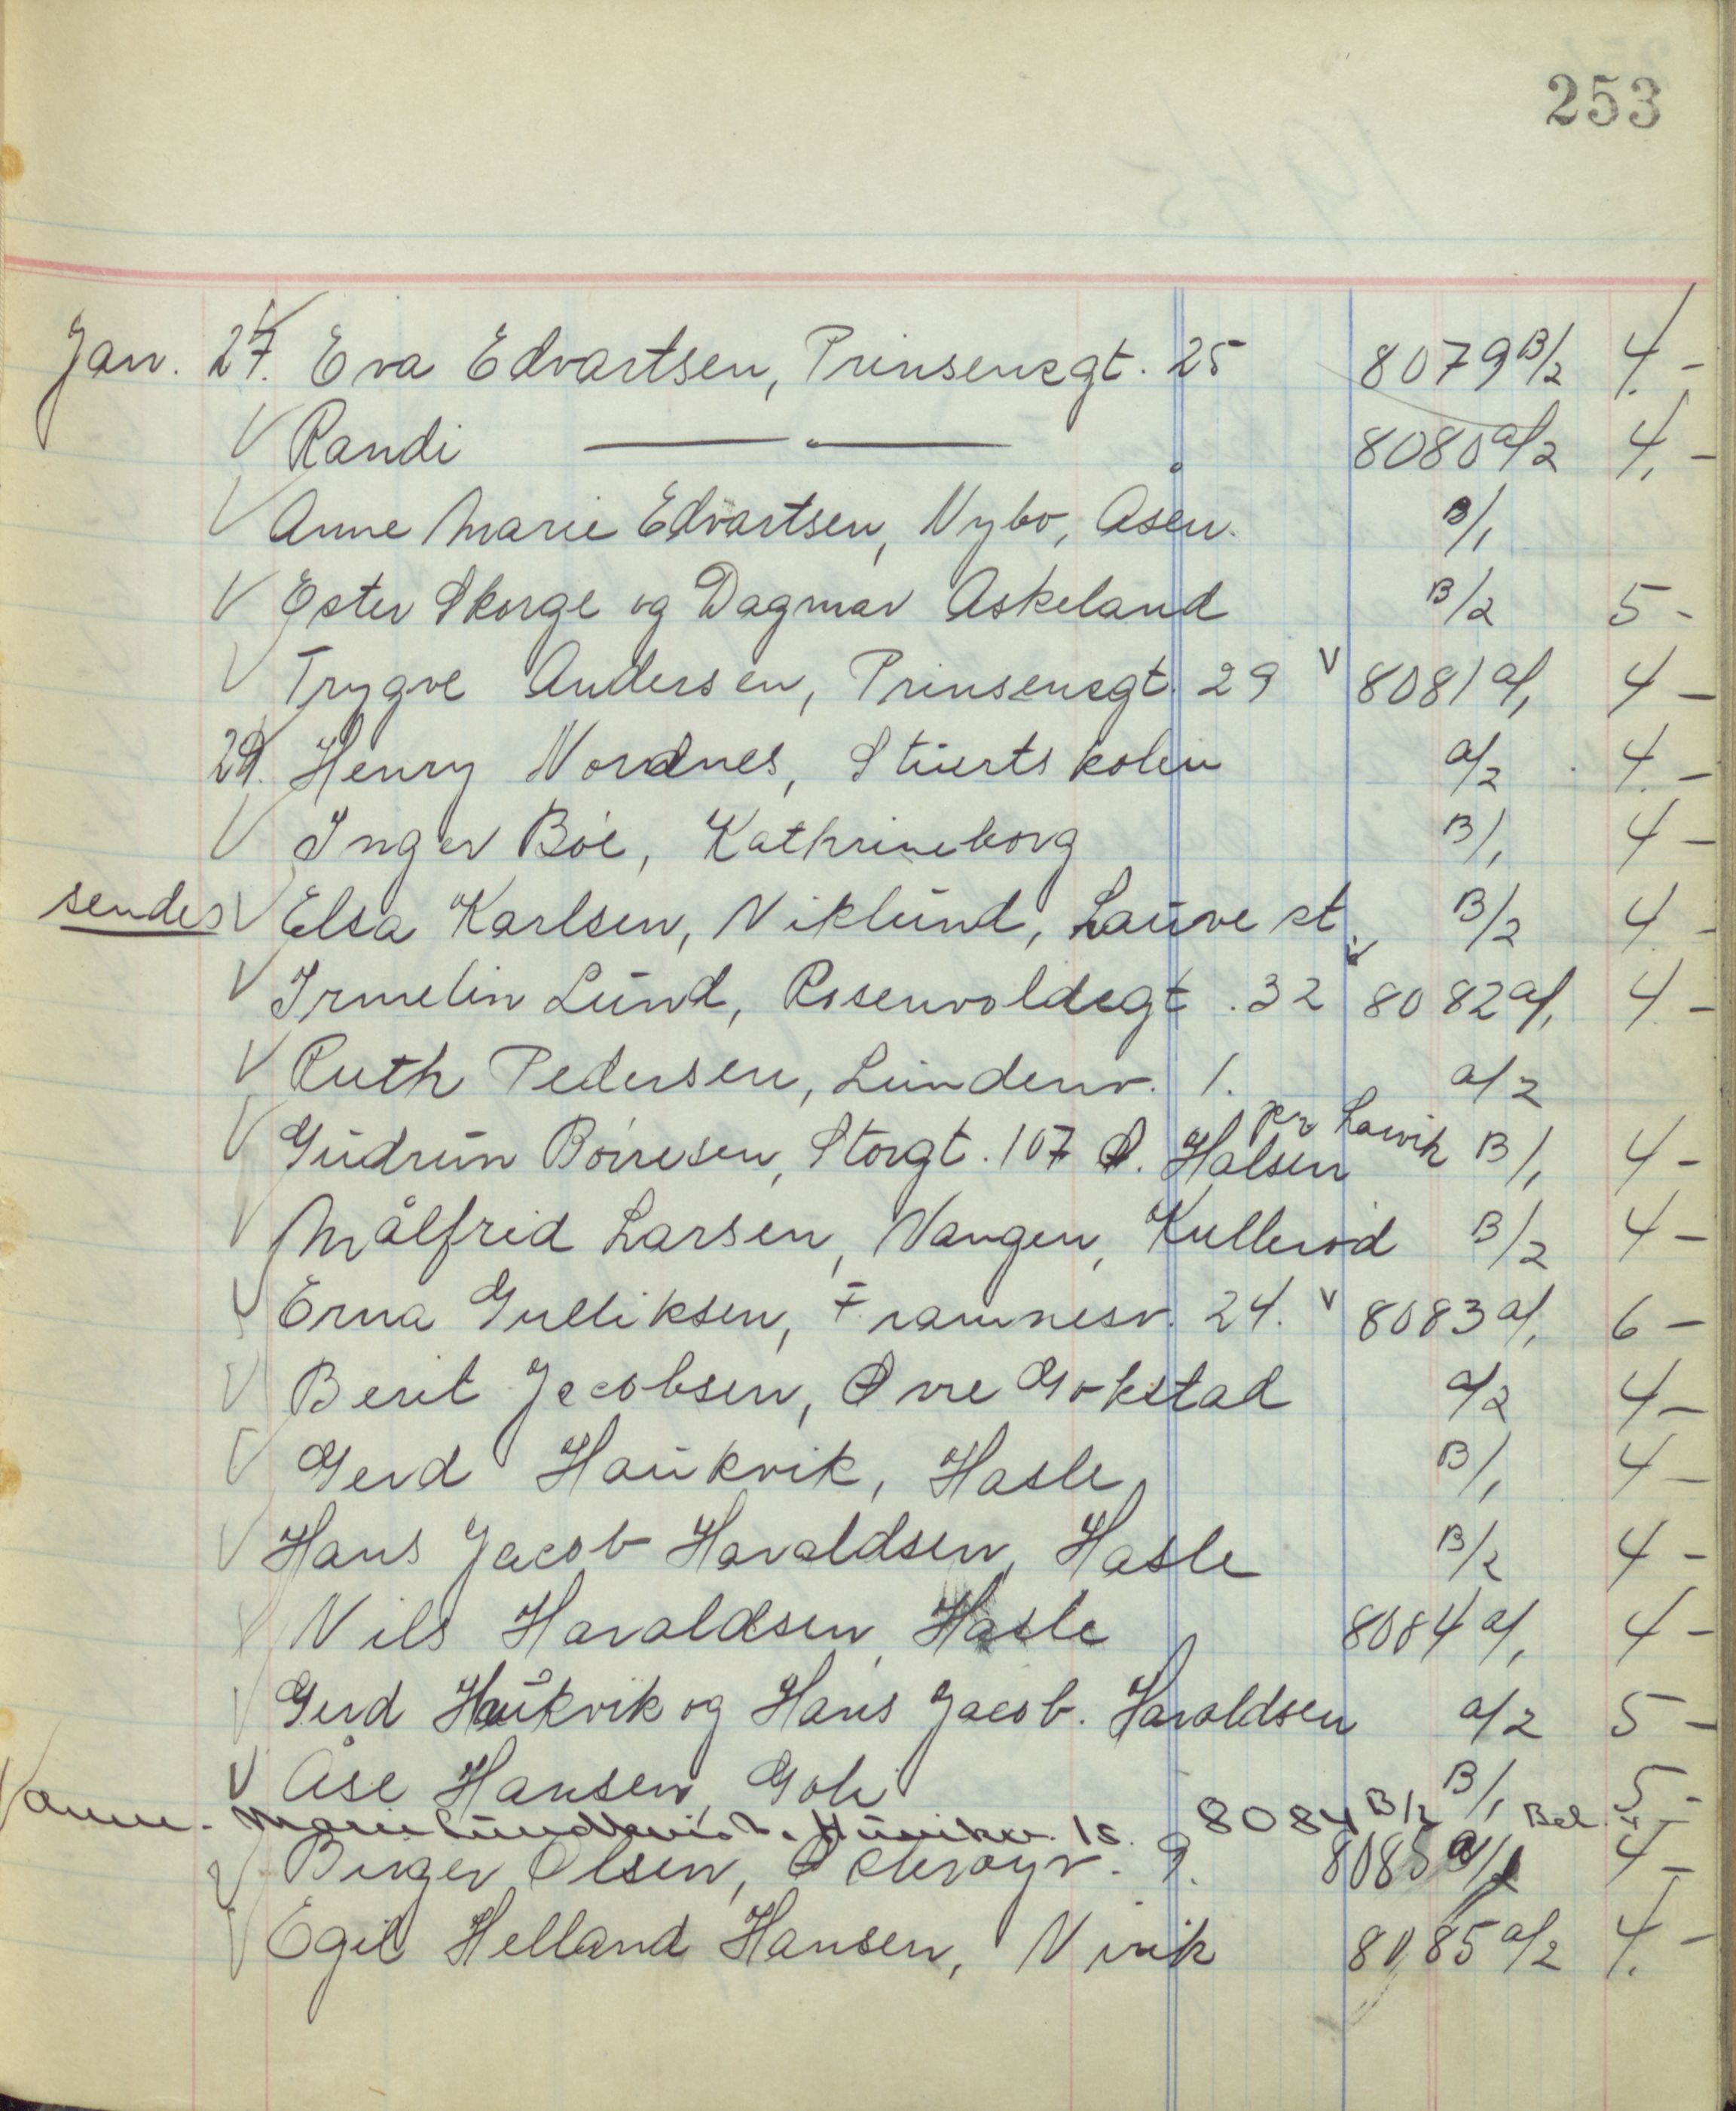 253
Jan. 27. Eva Edvartsen, Prinsensgt. 25 8079 B/2 4.-
V Randi —〃— 8080 a/2 4,-
V Anne Marie Edvartsen, Nybo, Åsen. B/1
V Ester Skorge og Dagmar Askeland B/2 5-
V Trygve Andersen, Prinsensgt. 29 V 8081 a/1 4-
29. Henry Nordnes, Stüertskolen a/2 4.-
V Inger Böe, Kathrineborg B/1 4-
sendes V Elsa Karlsen, Niklünd, Laüve st. B/2 4-
V Irmelin Lünd, Rosenvoldsgt. 32 V 8082 a/1 4-
V Ruth Pedersen, Lündenv. 1. a/2
V Güdrün Börresen, Storgt. 107 Ø. Halsen pr Larvik B/1 4-
V Målfrid Larsen, Vangen, Kullerød B/2 4-
V Erna Gulliksen, Framnesv. 24. V 8083 a/1 6-
V Berit Jacobsen, Øvre Gokstad a/2 4-
V Gerd Haükvik, Hasle B/1 4-
V Hans Jacob Haraldsen, Hasle B/2 4-
V Nils Haraldsen, Hasle 8084 a/1 4-
V Gerd Haükvik og Hans Jacob. Haraldsen a/2 5-
V Åse Hansen, Goli B/1 5-
V Anne-Marie 15. 8084 B/2 Bel. 4-
V Birger Olsen, Østerøyv. 9. 8085 a/1 4-
V Egil Helland Hansen, Virik 8085 a/2 4.-